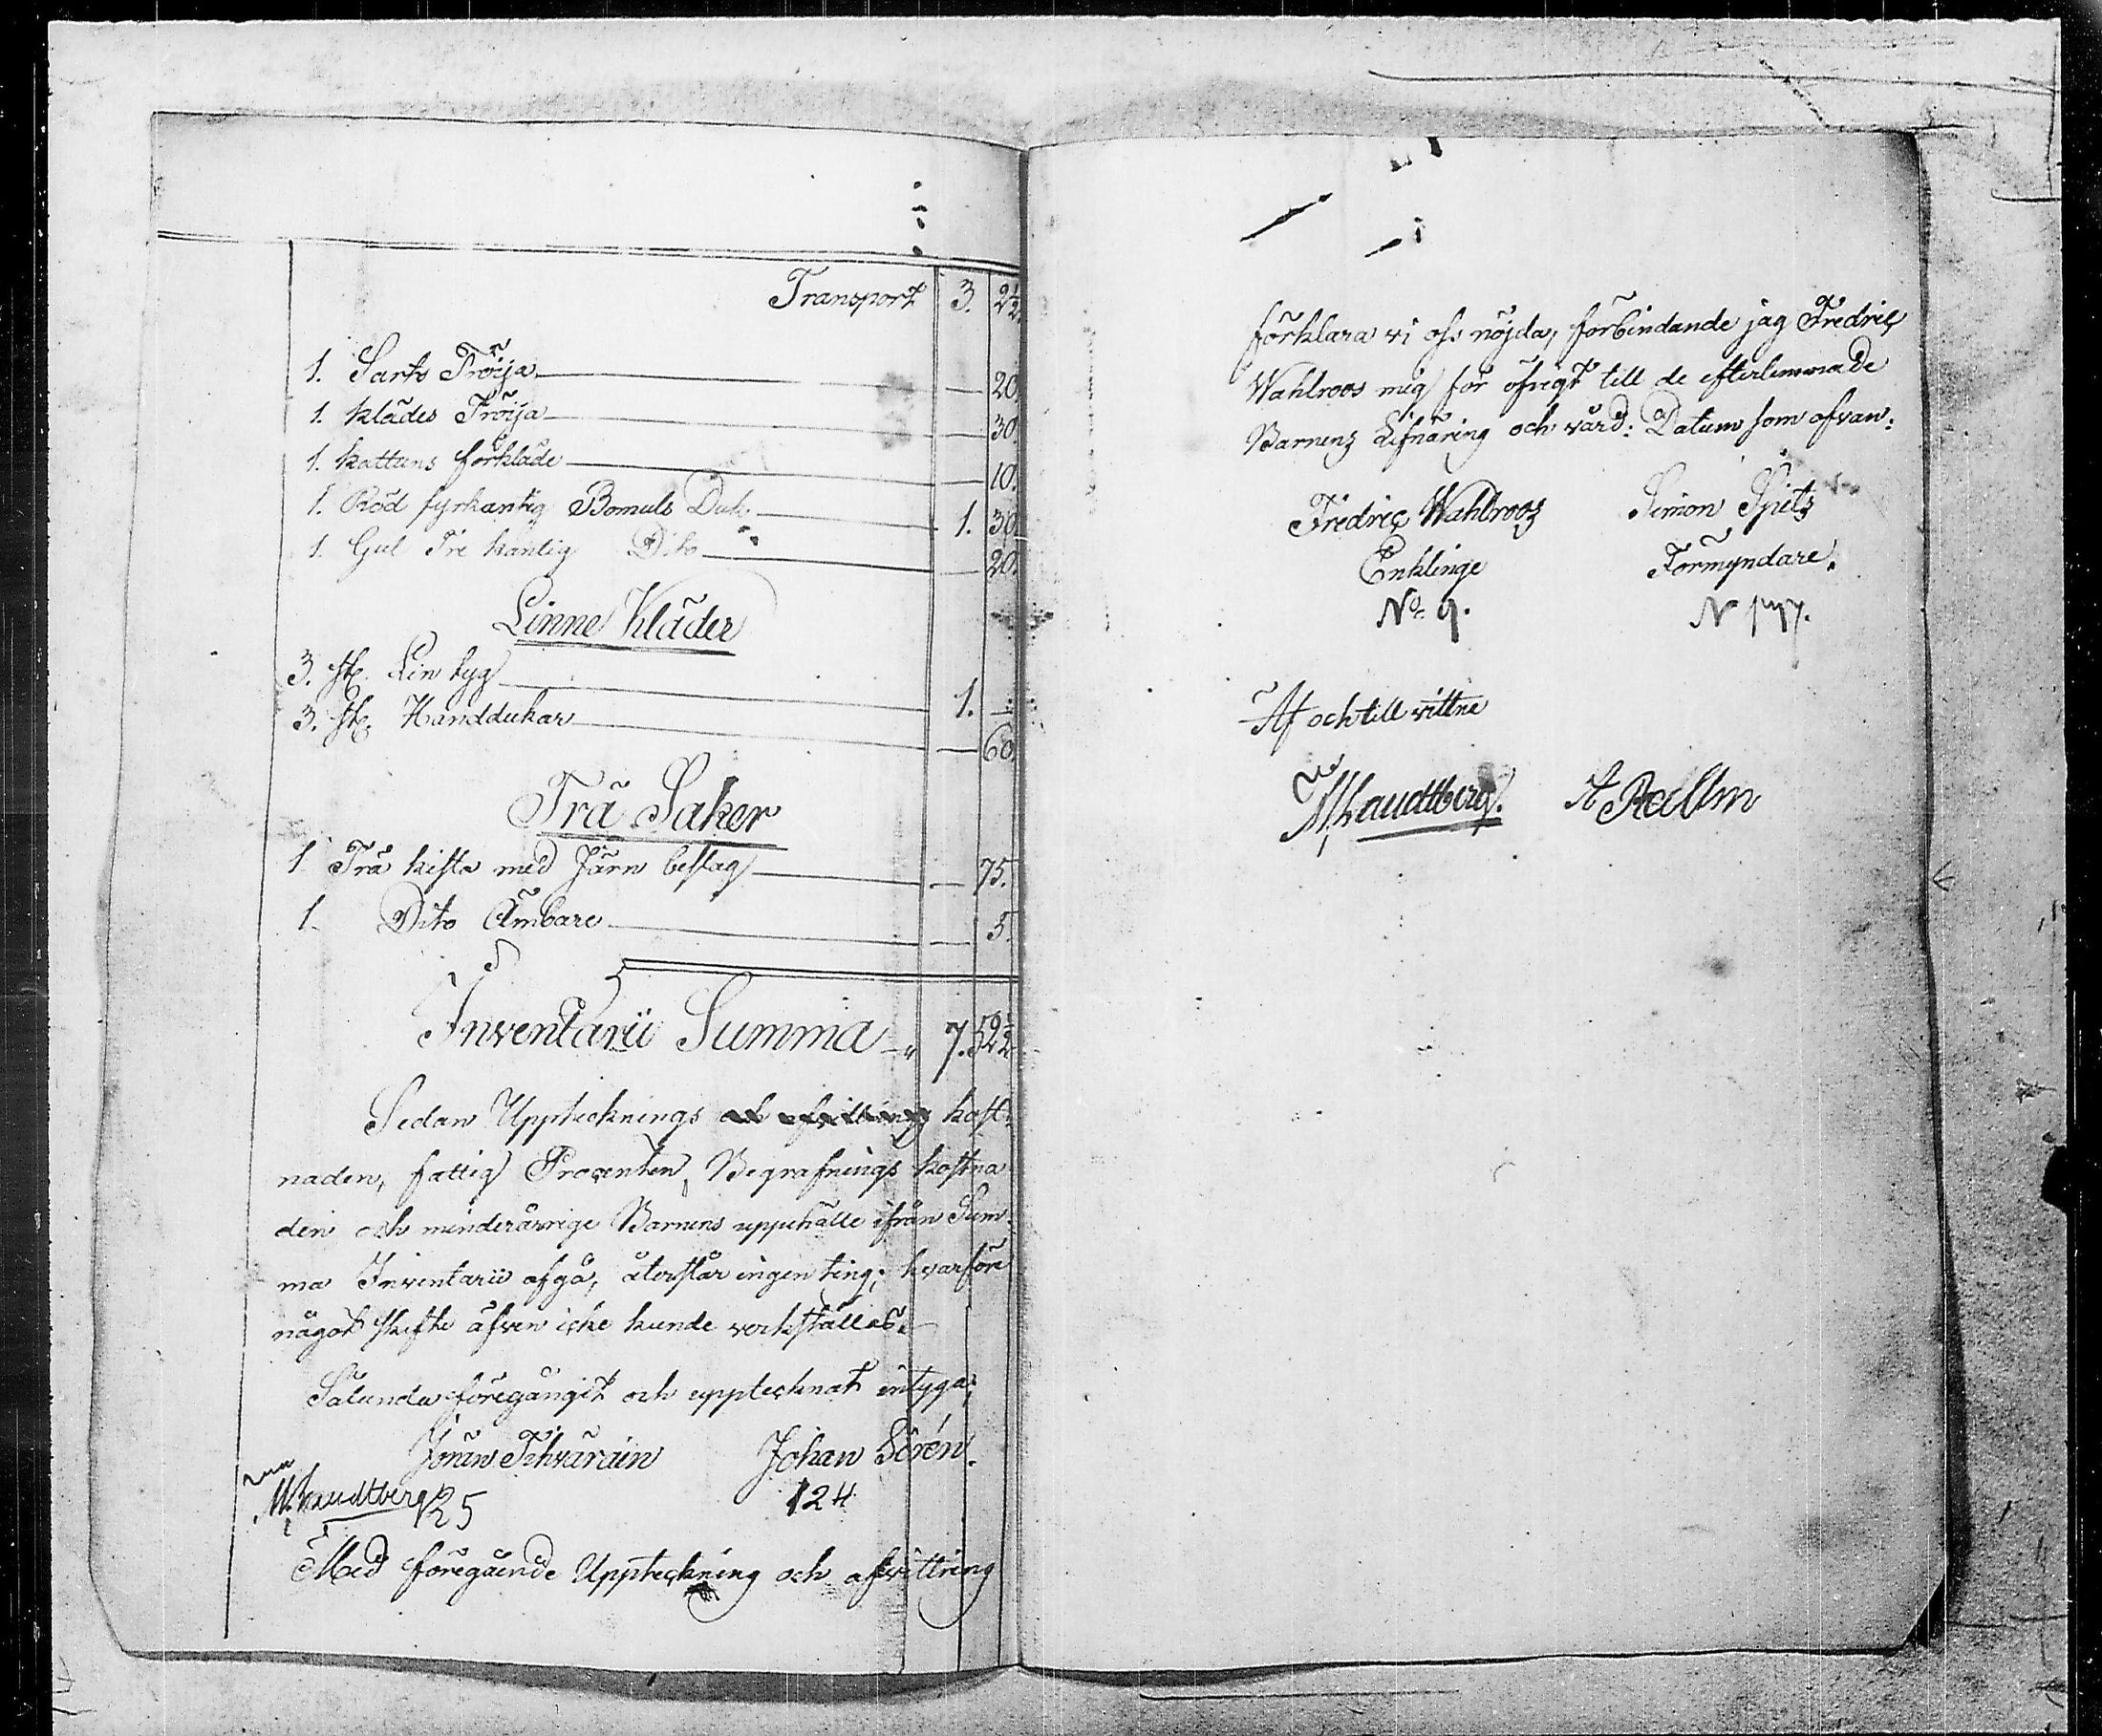 Transport 3. 2½.
1. Sarts Tröija — 20.
1. klädes Tröija — 30.
1. kattuns förkläde — 10.
1. Röd fyrkantig Bomuls Duk — 1. 30.
1. Gul Tre kantig Dito — 20.
Linne Kläder
3. st. Lin tyg — 1. —
3. st. Handdukar — 60.
Trä Saker
1 Trä kista med Järn beslag — 75.
1. Dito Ämbare — 5.
Inventarii Summa 7. 52½
Sedan Upptecknings kost-
naden, fattig Procenten, Begrafnings kostna
den och minderårige Barnens uppehälle ifrån Sum-
ma Inventarii afgå, återstår ingen ting; hvarföre
något skifte äfven icke kunde verkställas.
Sålunda föregångit och upptecknat intyga;
Johan Sirén.
125 124
Med föregående Uppteckning och afvittring
förklara vi oss nöjda, förbindande jag Fredric
Wahlroos mig för öfrigt till de efterlemnade
Barnens Lifnäring och vård: Datum som ofvan:
Fredric Wahlroos Simon Spets
Enklinge Förmyndare.
No 9. N 177.
Af och till vittne